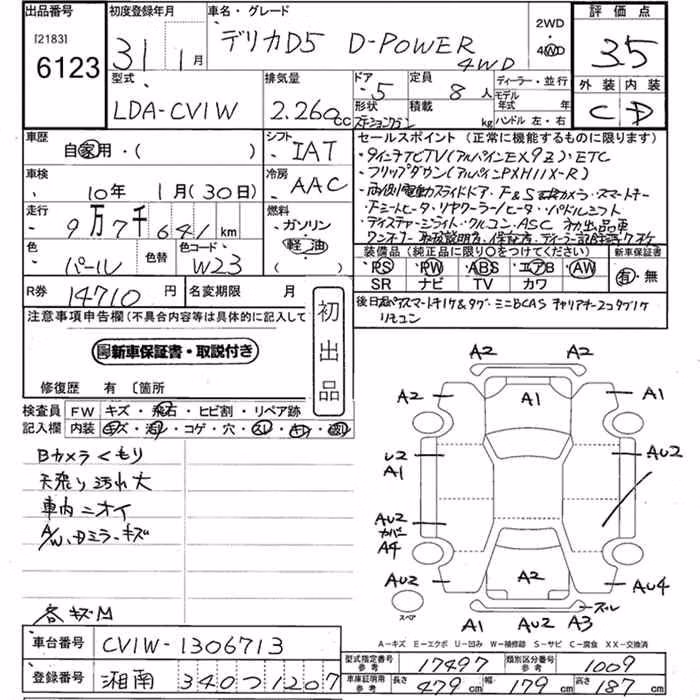 出品番号
[2183]
6123
初度登録年月
31 1月
車名・グレード
デリカD5 D-POWER
4WD
2WD
・
4WD
評価点
3.5
外装 内装
C D
型式
LDA-CV1W
排気量
2.260cc
ドア
5
形状
ステーションワゴン
定員
8人
積載
kg
ディーラー・並行
モデル
年式 年
ハンドル 左・右
車歴
自家用・( )
シフト
IAT
冷房
AAC
車検
10年 1月(30日)
走行
9万7千641km
燃料
ガソリン
軽油
色
パール
色替
色コード
W23
R券
14710円
名変期限 月
セールスポイント(正常に機能するものに限ります)
・9インチTCTV(アルパインEX9Z)・ETC
・フリップダウン(アルパインPXH11X-R)
・両側電動スライドドア・F&S カメラ・スマートキー
・シートヒータ・リヤクーラー/ヒータ・パドルシフト
・ディスチャージライト・クルコン・ASC 初出品車
ワンオーナー 取扱説明書、保証書、ディーラー記録簿7枚
装備品(純正品に限り○をつけてください)
・PS ・PW ・ABS ・エアB ・AW
SR ナビ TV カワ
新車保証書
有・無
後日 スマートキー1ケ&タグ・ミニBCAS
リモコン
注意事項申告欄(不具合内容等は具体的に記入して
新車保証書・取説付き
初出品
修復歴 有 〔箇所
検査員
記入欄
FW キズ・飛石・ヒビ割・リペア跡
内装 キズ・汚レ・コゲ・穴・スレ
Bカメラくもり
天張り汚れ大
車内ニオイ
A/W、Dミラーキズ
各キズM
A2 A2
A2 A1 A1
U2
A1
AU2
AU2
カバー
A4
AU2 A2 AU4
スペア
A1 AU2 A3
スレ
A-キズ E-エクボ U-凹み W-補修跡 S-サビ C-腐食 XX-交換済
車台番号
CV1W-1306713
登録番号
湘南 340つ1207
型式指定番号
参考
17497
類別区分番号
参考
1009
車庫証明用
参考
長さ 479cm 幅 179cm 高さ 187cm